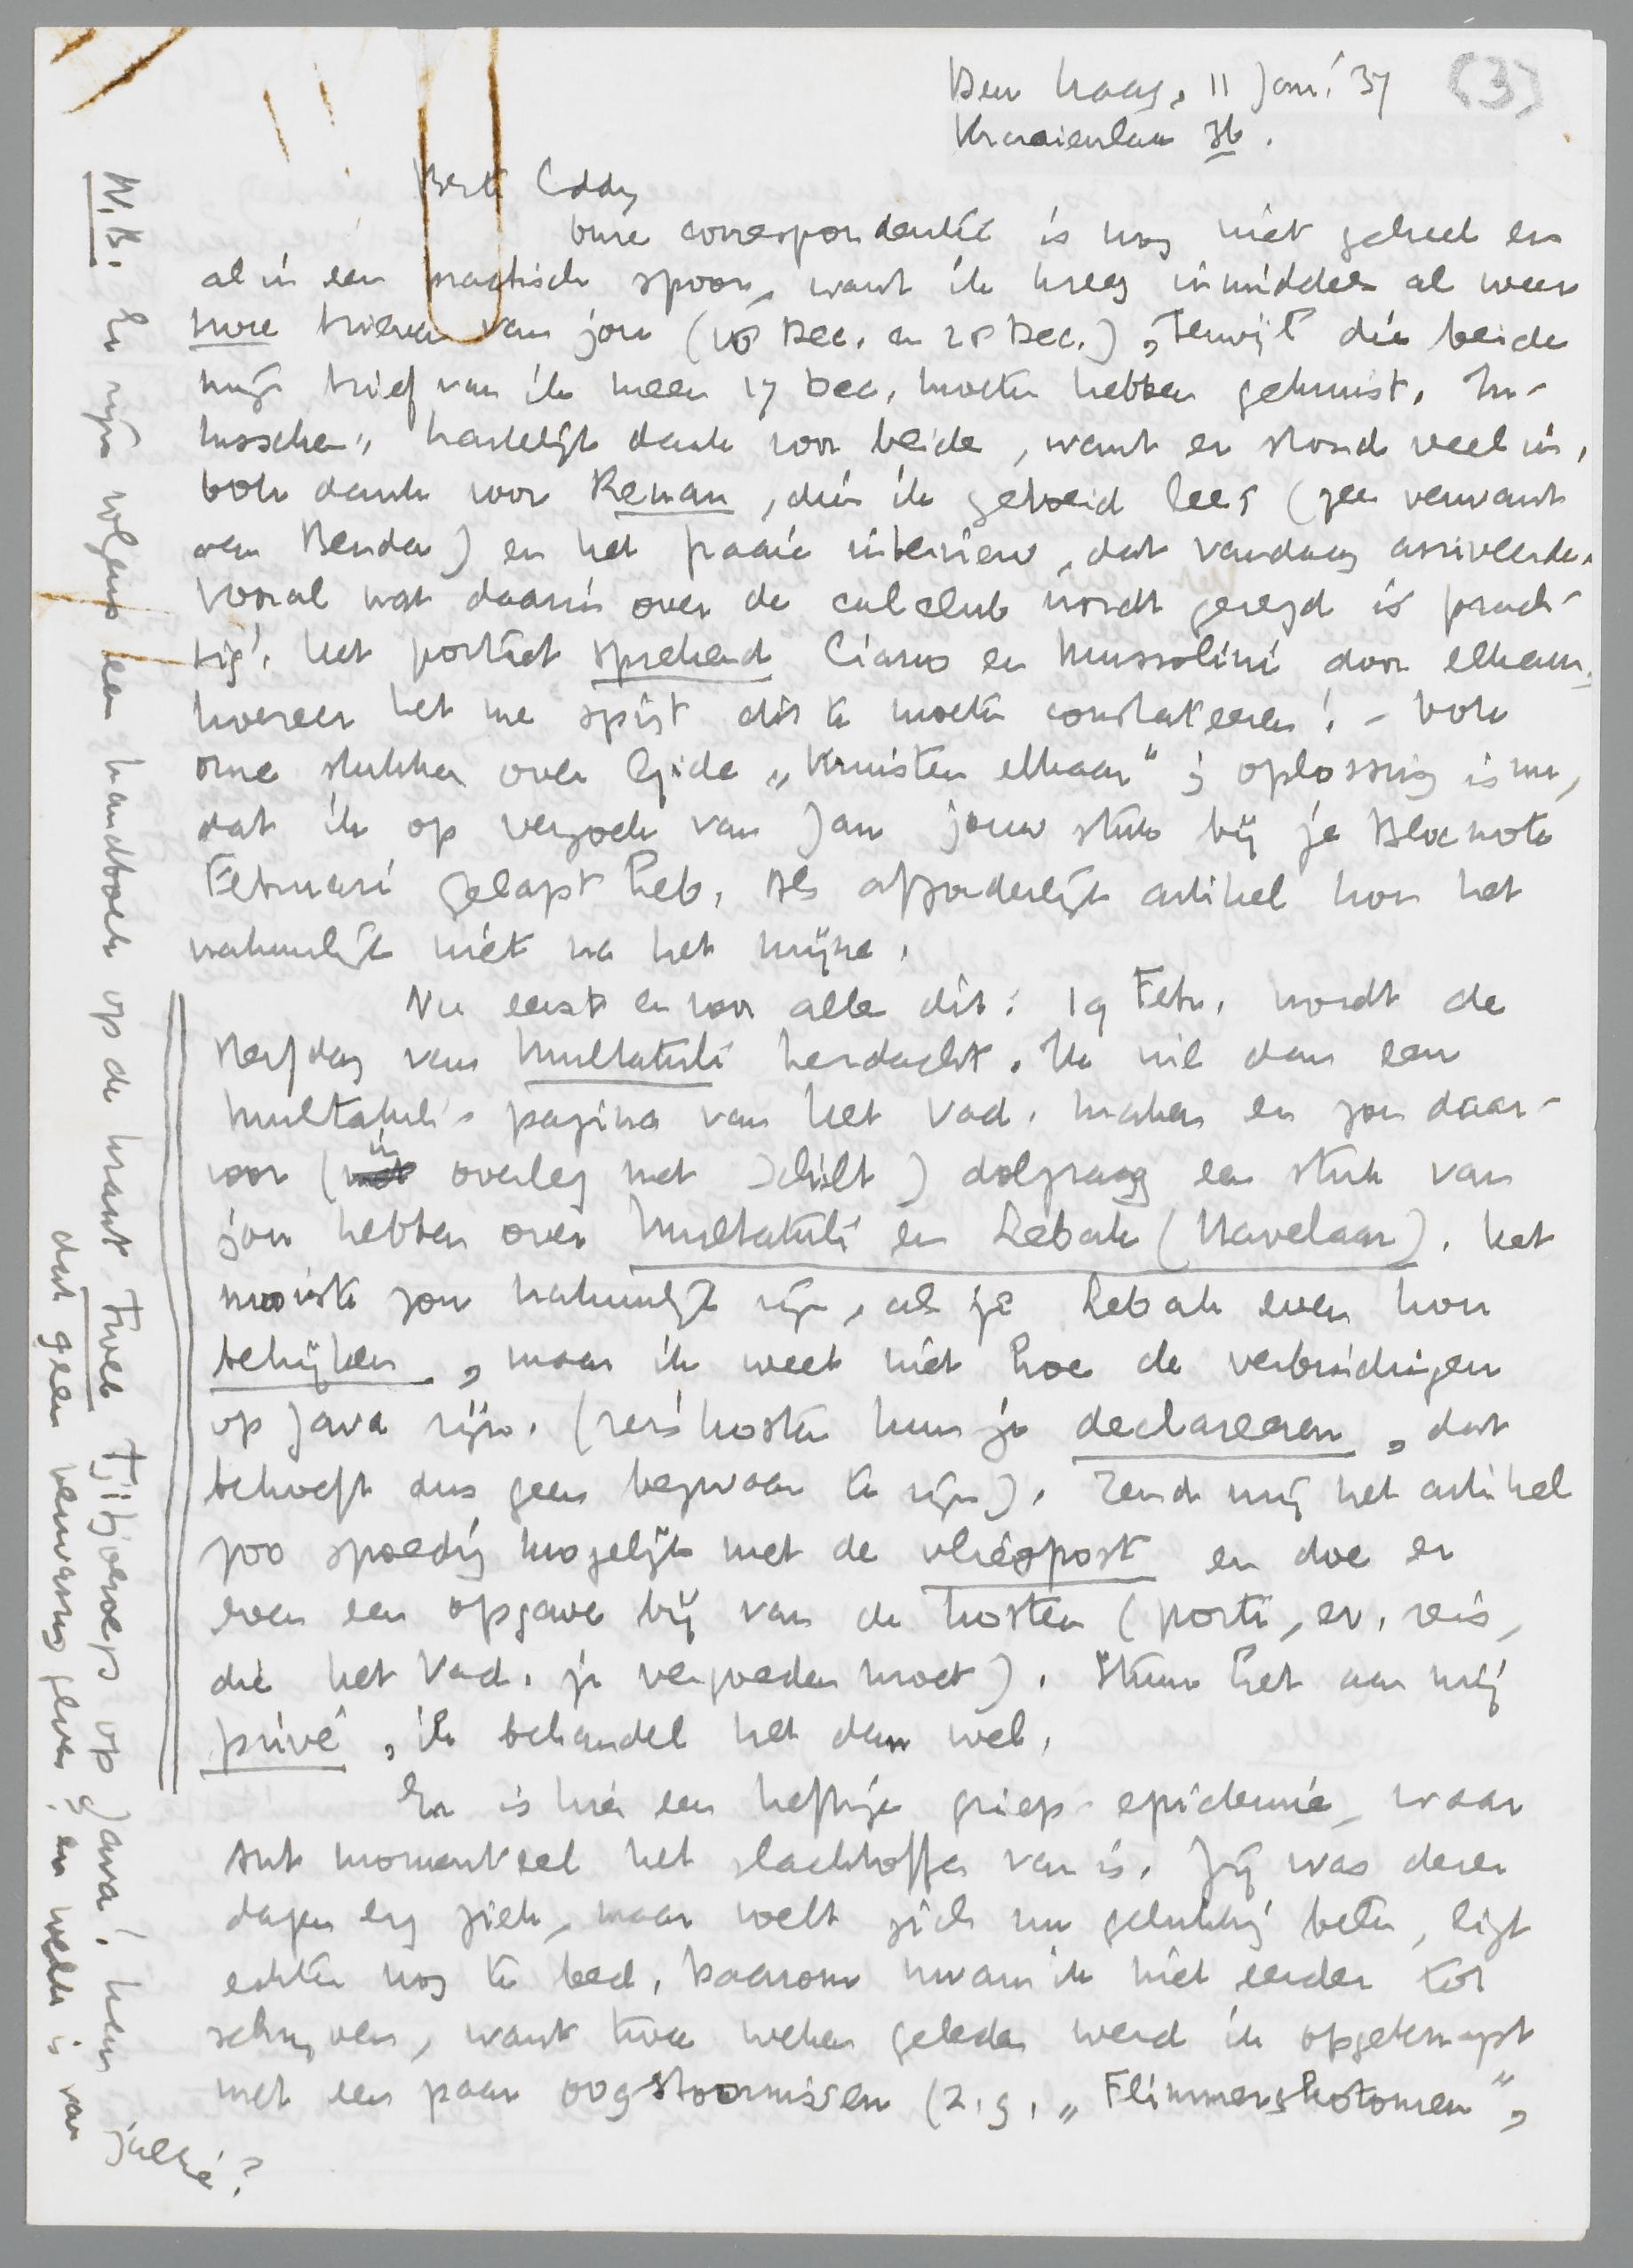 Den Haag, 11 Jan. '37 (3)
Kraaienlaan 36.
Beste Eddy
Onze correspondentie is nog niet geheel en
al in een practisch spoor, want ik kreeg inmiddels al weer
twee brieven van jou (18 Dec. en 28 Dec.), terwijl die beide
mijn brief van ik meen 17 Dec. moeten hebben gekruist. In-
tusschen, hartelijk dank voor beide, want er stond veel in,
ook dank voor Renan, die ik geboeid lees (zeer verwant
aan Benda) en het fraaie interview, dat vandaag arriveerde.
Vooral wat daarin over de culclub wordt gezegd is prach-
tig! Het portret sprekend Ciano en Mussolini door elkaar,
hoezeer het me spijt dit te moeten constateeren! – Ook
onze stukken over Gide „kruisten elkaar"; oplossing is nu,
dat ik op verzoek van Jan jouw stuk bij je Blocnote
Februari gelapt heb. Als afzonderlijk artikel kon het
natuurlijk niet na het mijne.
Nu eerst en voor alles dit: 19 Febr. wordt de
sterfdag van Multatuli herdacht. Ik wil dan een
Multatuli-pagina van het Vad. maken en zou daar-
voor (in overleg met Schilt) dolgraag een stuk van
jou hebben over Multatuli en Lebak (Havelaar). Het
mooiste zou natuurlijk zijn, als je Lebak even kon
bekijken, maar ik weet niet hoe de verbindingen
op Java zijn. (reiskosten kun je declareeren, dat
behoeft dus geen bezwaar te zijn). Zend mij het artikel
zoo spoedig mogelijk met de vliegpost en doe er
even een opgave bij van de kosten (porti, ev. reis,
die het Vad. je vergoeden moet). Stuur het aan mij
privé, ik behandel het dan wel.
Er is hier een heftige griep-epidemie, waar
Ant momenteel het slachtoffer van is. Zij was dezer
dagen erg ziek, maar voelt zich nu gelukkig beter, ligt
echter nog te bed. Daarom kwam ik niet eerder tot
schrijven, want twee weken geleden werd ik opgeknapt
met een paar oogstoornissen (z.g. „Flimmerskotomen",
N.B. Er zijn volgens een handboek op de krant twee Tjitjoeroegs op Java! Kan
dat geen verwarring geven? en welke is van
jullie?